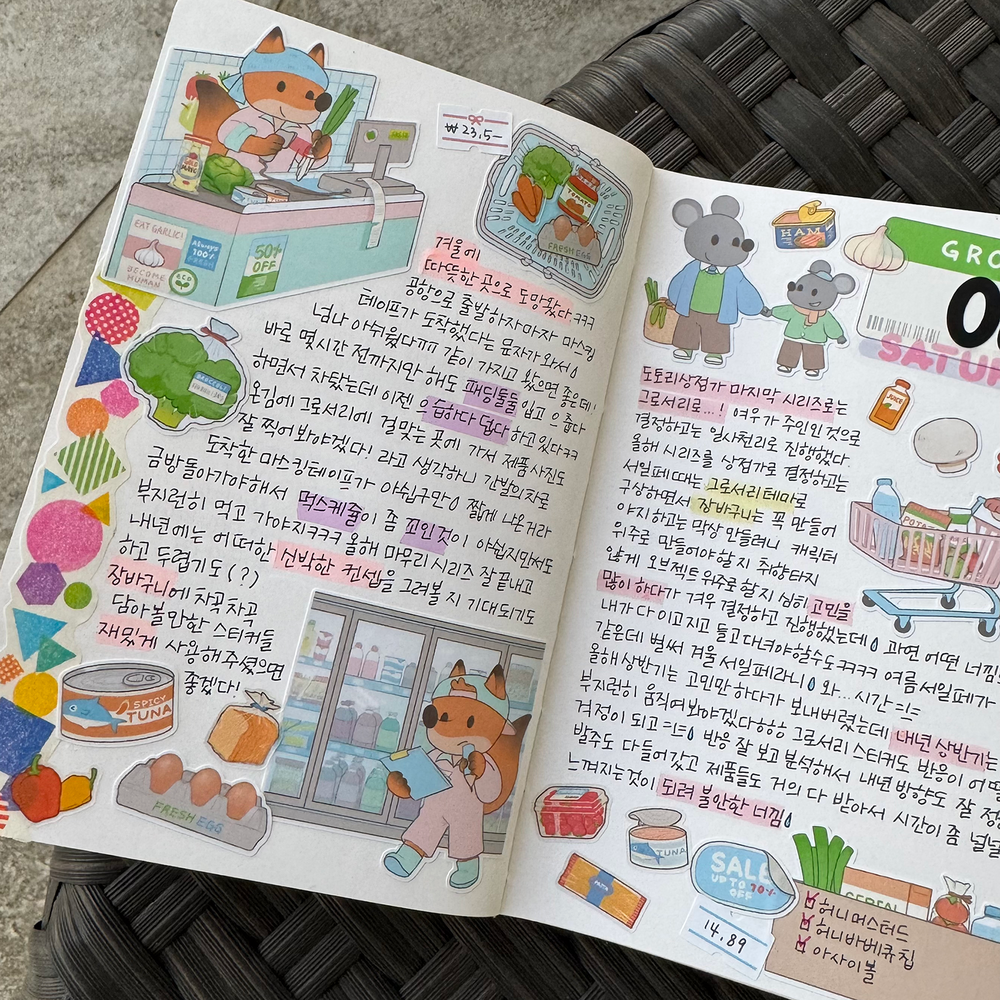 ₩23,5-
EAT GARLIC!
BECOME
HUMAN
Always
100%
50%
OFF
TOMATO
FRESH EGG
겨울에
따뜻한 곳으로 도망왔다ㅋㅋㅋ
공항으로 출발하자마자 마스킹
테이프가 도착했다는 문자가 와서
넘나 아쉬웠다ㅠㅠ 같이 가지고 왔으면 좋은데!
바로 몇시간 전까지만 해도 패딩둘둘 입고 으 춥다
하면서 차탔는데 이젠 으 습하다 덥다 하고 있다ㅋㅋ
온김에 그로서리에 걸맞는 곳에 가서 제품사진도
잘 찍어봐야겠다! 라고 생각하니 간발의 차로
도착한 마스킹테이프가 아쉽구만 짧게 나온거라
금방돌아가야해서 먹스케쥴이 좀 꼬인것이 아쉽지만서도
부지런히 먹고 가야지ㅋㅋㅋ 올해 마무리 시리즈 잘 끝내고
내년에는 어떠한 신박한 컨셉을 그려볼 지 기대되기도
하고 두렵기도(?)
장바구니에 차곡차곡
담아볼만한 스티커들
재밌게 사용해주셨으면
좋겠다!
BROCCOLI
SPICY
TUNA
FRESH EGG
HAM
GRO
SATUR
JUICE
도토리상점가 마지막 시리즈로는
그로서리로...! 여우가 주인인 것으로
결정하고는 일사천리로 진행했다.
올해 시리즈를 상점가로 결정하고는
서일페때는 그로서리테마로
구상하면서 장바구니는 꼭 만들어
야지하고는 막상 만들려니 캐릭터
위주로 만들어야 할 지 취향타지
않게 오브젝트 위주로 할 지 심히 고민을
많이 하다가 겨우 결정하고 진행했는데 과연 어떤 너낌
내가 다 이고지고 들고 대녀야할수도ㅋㅋㅋㅋ 여름서일페가
같은데 벌써 겨울 서일페라니 와... 시간
올해 상반기는 고민만 하다가 보내버렸는데 내년상반기는
부지런히 움직여봐야겠다ㅎㅎㅎ 그로서리 스티커도 반응이 어떨
걱정이 되고 반응 잘 보고 분석해서 내년 방향도 잘 정
발주도 다 들어갔고 제품들도 거의 다 받아서 시간이 좀 널널
느껴지는것이 되려 불안한 너낌
POTA
TUNA
PASTA
SALE
UP TO 70%
OFF
14,89
CEREAL
허니머스터드
허니바베큐칩
아사이볼